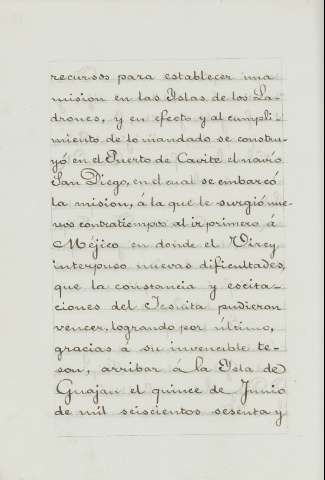 recursos para establecer una
mision en las Yslas de los La-
drones, y en efecto y al cumpli-
miento de lo mandado se constru-
yó en el Puerto de Cavite el navío
San Diego, en el cual se embarcó
la mision, á la que le surgió nue-
vos contratiempos al ir primero á
Méjico en donde el Virey
interpuso nuevas dificultades,
que la constancia y escita-
ciones del Jesuita pudieron
vencer, logrando por último,
gracias á su invencible te-
son, arribar á la Ysla de
Guajan el quince de Junio
de mil seiscientos sesenta y